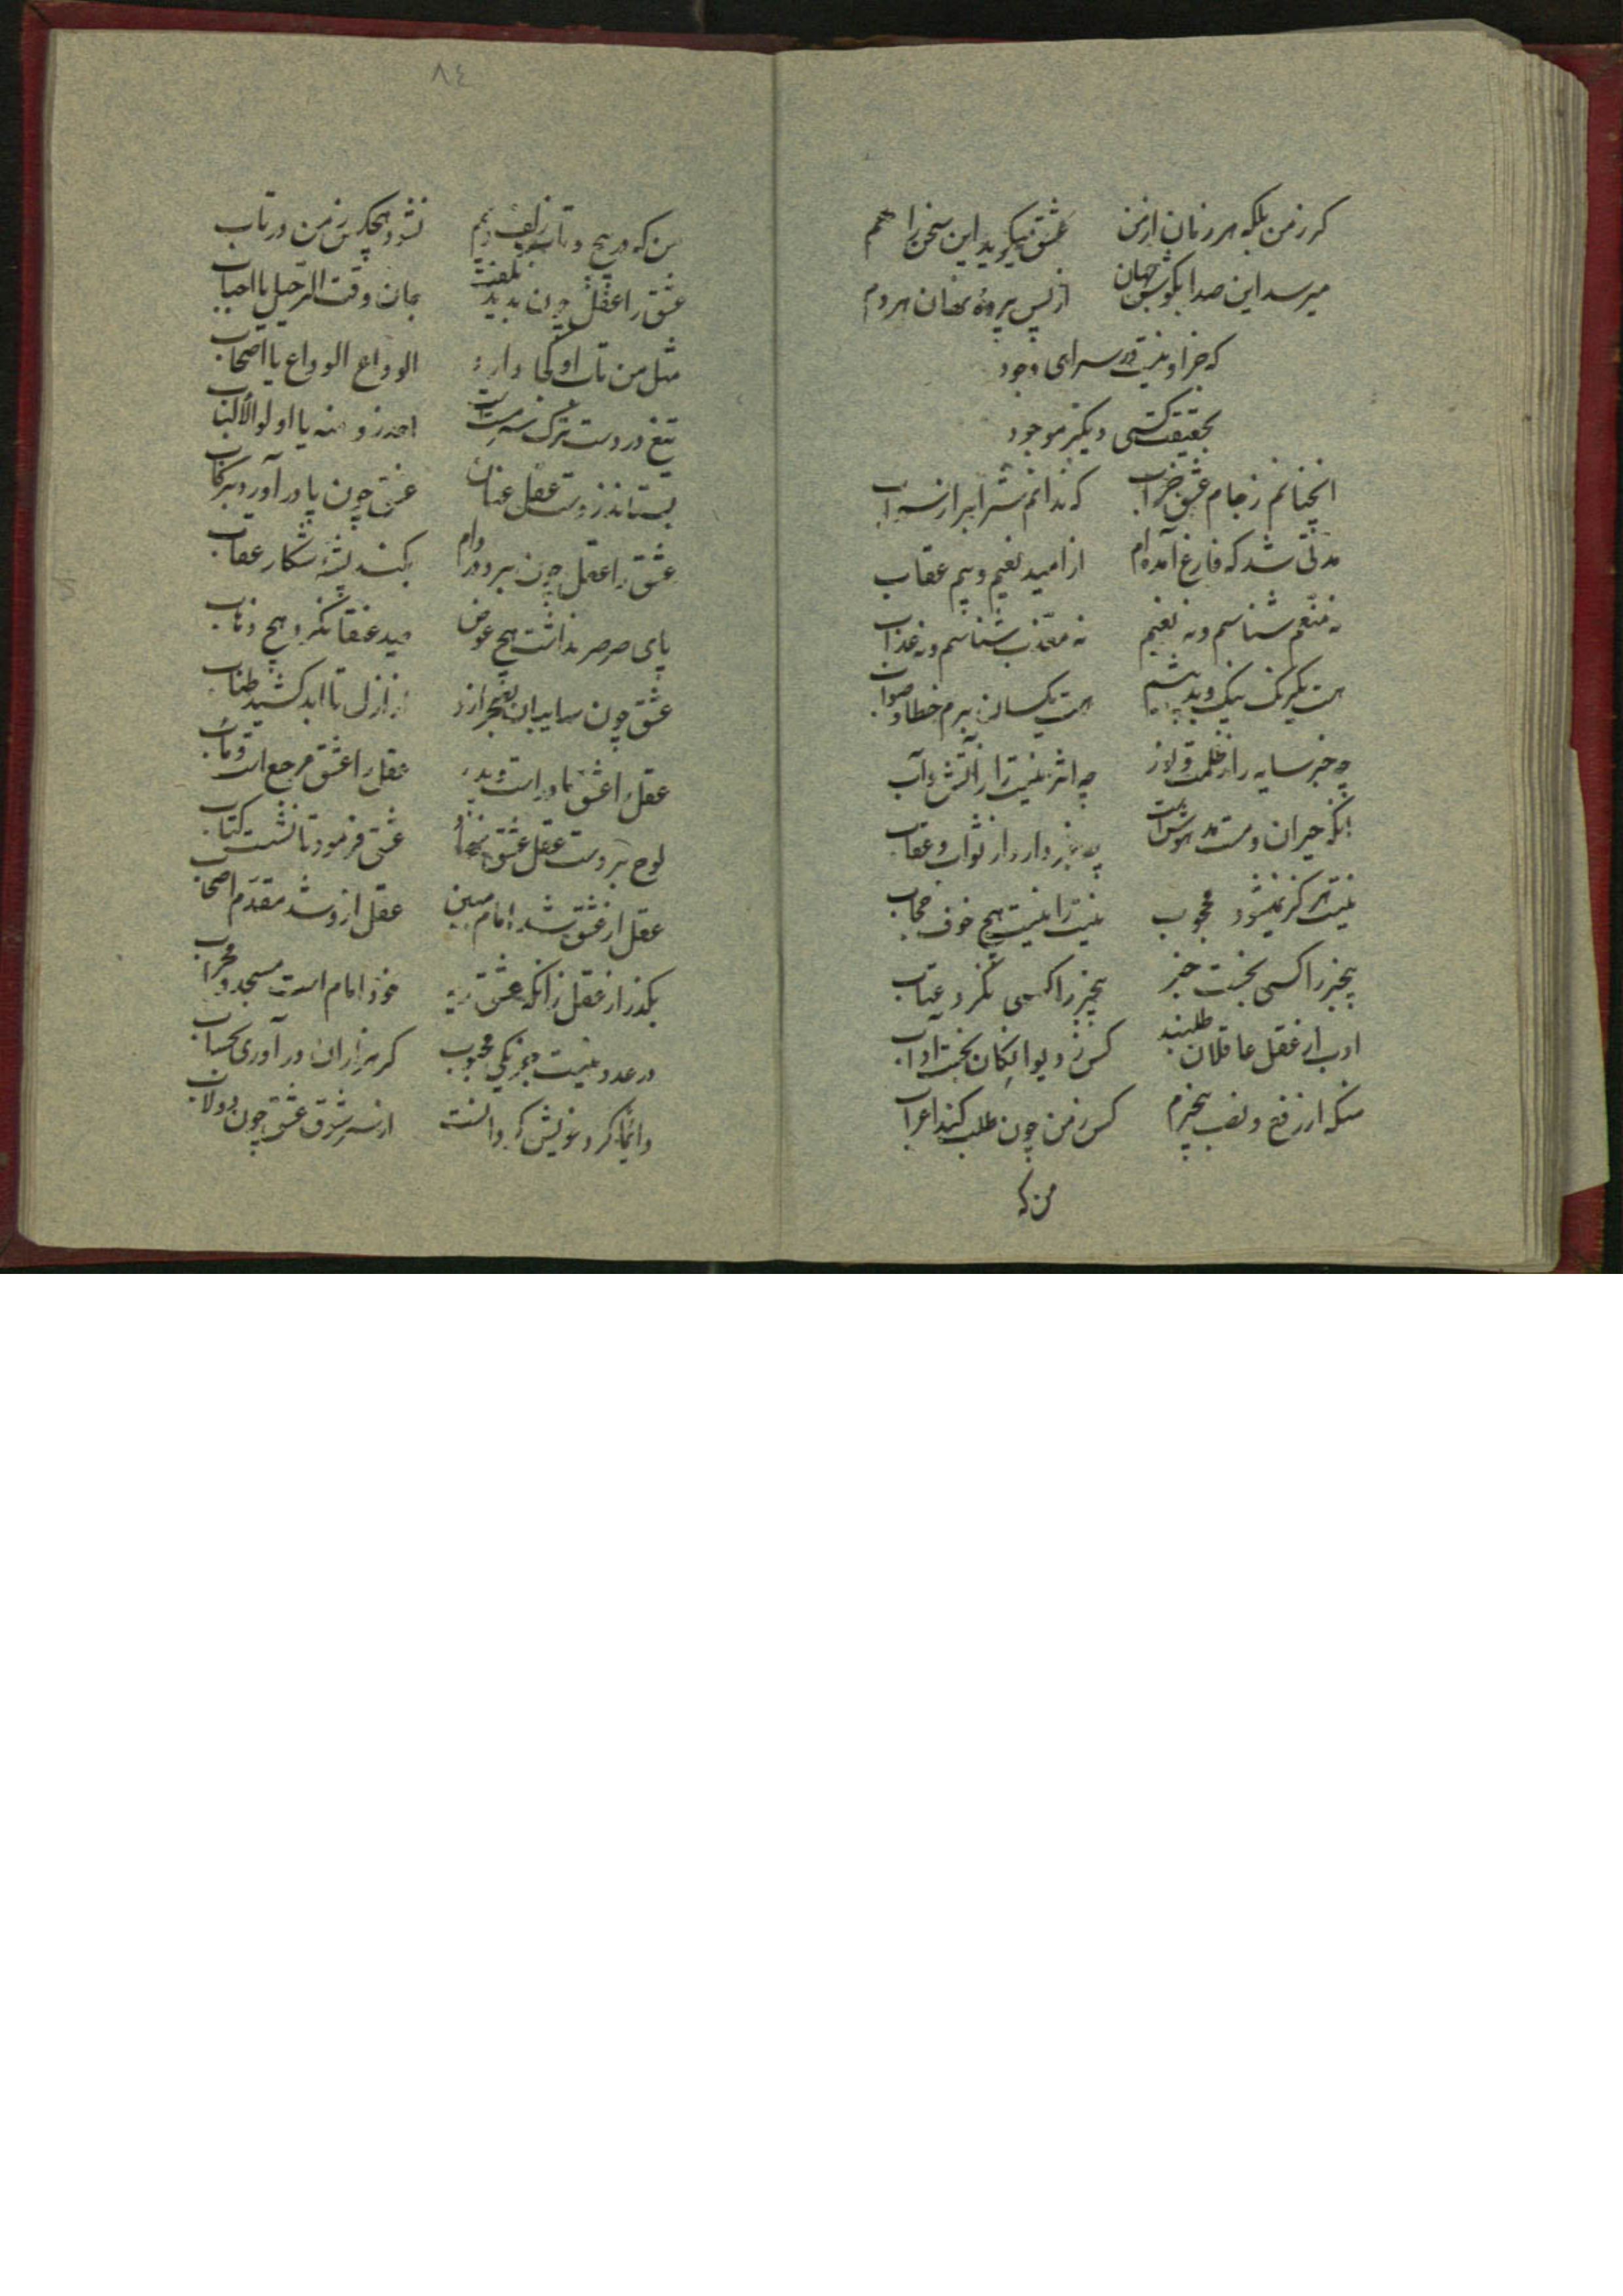 کر زمن بلکه هر زمان از من عشق میکوید این سخن را هم
میرسد این صدا بکوش جهان از پس پرده نهان هر دم
که جز او نیست در سرای وجود
بحقیقت کسی دیکر موجود
انچنانم ز جام عشق خراب که ندانم شراب را ز سراب
مدتی شد که فارغ آمده‌ام از امید نعیم و بیم عقاب
نه منعم شناسم و نه نعیم نه معذب شناسم و نه عذاب
هست یکرنک نیک و بد پیشم هست یکسان برم خطا و صواب
چه خبر سایه را ز ظلمت و نور چه اثر نیست را ز آتش و آب
انکه حیران و مست مدهوش است چه خبر دارد از ثواب و عقاب
نیست هرکز نمیشود محجوب نیست را نیست هیچ خوف حجاب
بیخبر را کسی نجست خبر بیخبر را کسی نکرد عتاب
ادب از عقل عاقلان طلبند کس ز دیوانکان نجست آداب
منکه از رفع و نصب بیخبرم کس ز من چون طلب کند اعراب
من که
٨٤
من که در پیچ و تاب زلف ویم نشود هیچکس ز من در تاب
عشق را عقل چون بدید بکفت جان وقت الرحیل یا احباب
مثل من تاب او کجا دارد الوداع الوداع یا اصحاب
تیغ در دست ترک سرمست احذروا منه یا اولو الألباب
بستاند ز دست عقل عنان عشق چون پا در آورد برکاب
عشق را عقل چون برد در دام نکند پشه شکار عقاب
پای صرصر نداشت هیچ عوض صید عنقا نکرد هیچ ذباب
عشق چون سایبان بصحرا زد از ازل تا ابد کشید طناب
عقل را عشق مادر است و پدر عقل را عشق مرجع است و مآب
لوح بر دست عقل عشق نهاد عشق فرمود تا نوشت کتاب
عقل از عشق شد امام مبین عقل ازو شد مقدم اصحاب
بکذر از عقل زانکه عشق خود امام است مسجد و محراب
در عدد نیست جز یکی محجوب کر هزاران در آوری بحساب
دایما کرد خویش کردانست از سر شوق عشق چون دولاب